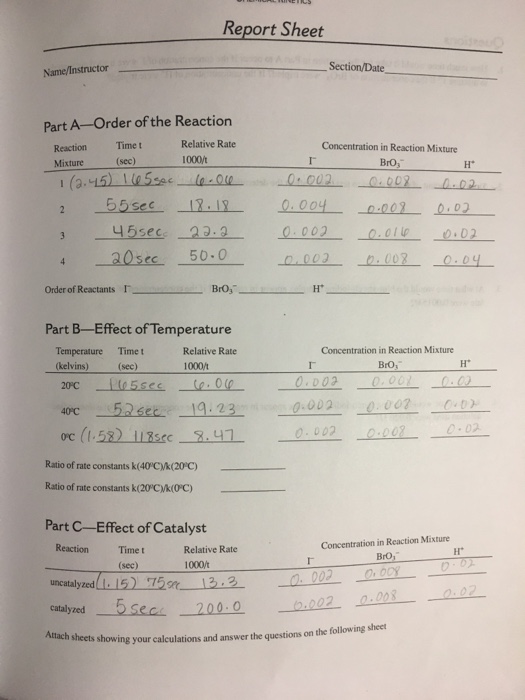 Report Sheet
Name/Instructor Section/Date
Part A—Order of the Reaction
Reaction Time t Relative Rate Concentration in Reaction Mixture
Mixture (sec) 1000/t I⁻ BrO₃⁻ H⁺
1 (2.45) 165sec 6.06 0.002 0.008 0.02
2 55sec 18.18 0.004 0.008 0.02
3 45sec 22.2 0.002 0.016 0.02
4 20sec 50.0 0.002 0.008 0.04
Order of Reactants I⁻ BrO₃⁻ H⁺
Part B—Effect of Temperature
Temperature Time t Relative Rate Concentration in Reaction Mixture
(kelvins) (sec) 1000/t I⁻ BrO₃⁻ H⁺
20°C 165sec 6.06 0.002 0.008 0.02
40°C 52sec 19.23 0.002 0.008 0.02
0°C (1.58) 118sec 8.47 0.002 0.008 0.02
Ratio of rate constants k(40°C)/k(20°C)
Ratio of rate constants k(20°C)/k(0°C)
Part C—Effect of Catalyst
Reaction Time t Relative Rate Concentration in Reaction Mixture
(sec) 1000/t I⁻ BrO₃⁻ H⁺
uncatalyzed (1.15) 75sec 13.3 0.002 0.008 0.02
catalyzed 5sec 200.0 0.002 0.008 0.02
Attach sheets showing your calculations and answer the questions on the following sheet